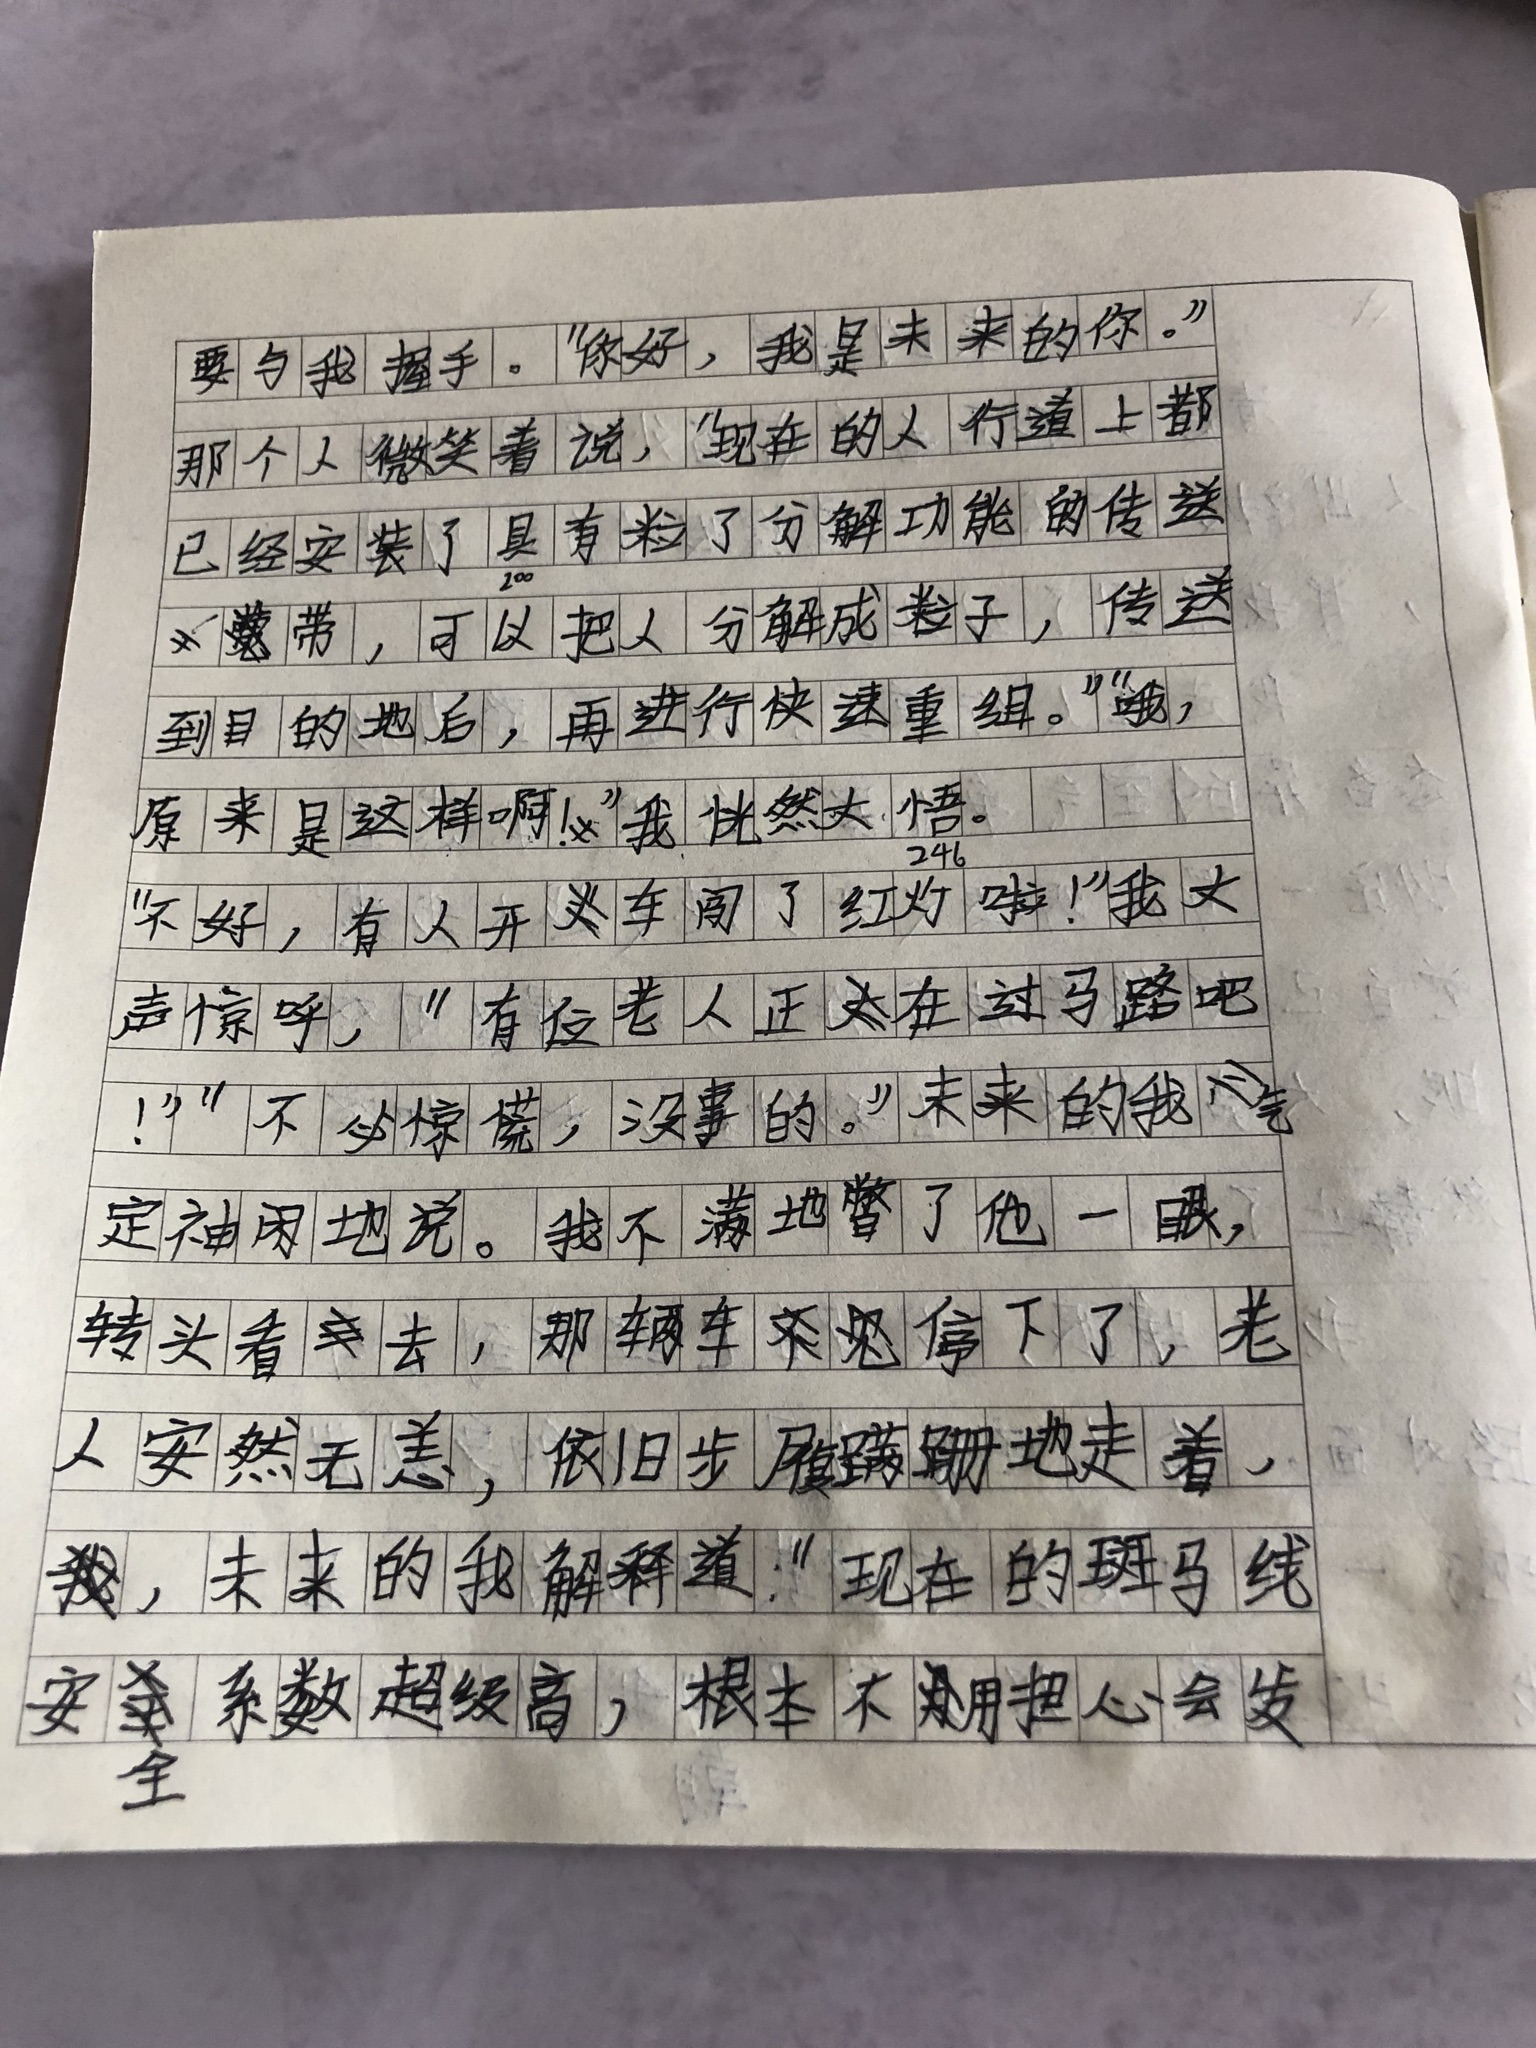 要与我握手。“你好，我是未来的你。”
那个人微笑着说，“现在的人行道上都
已经安装了具有粒了分解功能的传送
200
带，可以把人分解成粒子，传送
到目的地后，再进行快速重组。”“哦，
原来是这样啊！”我恍然大悟。
246
“不好，有人开车闯了红灯啦！”我大
声惊呼，“有位老人正在过马路吧
！”“不必惊慌，没事的。”未来的我气
定神闲地说。我不满地瞥了他一眼，
转头看去，那辆车停下了，老
人安然无恙，依旧步履蹒跚地走着，
，未来的我解释道：“现在的斑马线
安系数超级高，根本不用担心会发
全